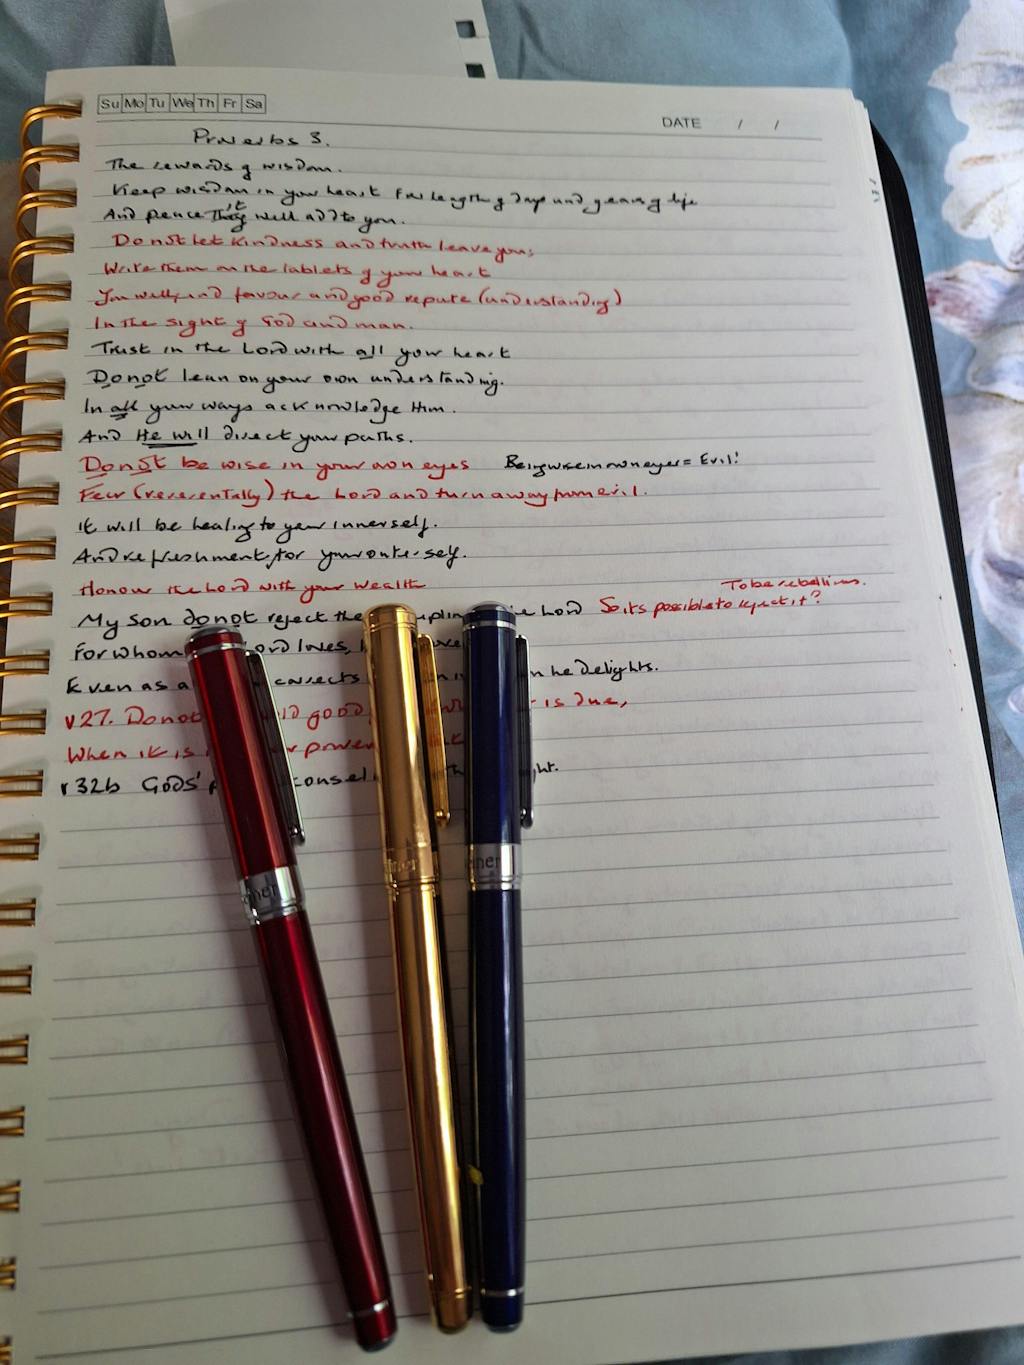 Su Mo Tu We Th Fr Sa
DATE / /
Proverbs 3.
The rewards of wisdom.
Keep wisdom in your heart For length of days and years of life
And peace they it will add to you.
Do not let kindness and truth leave you;
Write them on the tablets of your heart
You will find favour and good repute (understanding)
In the sight of God and man.
Trust in the Lord with all your heart
Do not lean on your own understanding.
In all your ways acknowledge Him.
And He will direct your paths.
Do not be wise in your own eyes Being wise in own eyes = Evil!
Fear (reverentially) the Lord and turn away from evil.
it will be healing to your inner self.
And refreshment for your outer self.
Honour the Lord with your wealth
To be rebellious.
My son do not reject the Lord So its possible to reject it?
For whom ord loves,
Even as a corrects n he delights.
v27. Do not good is due,
When it is power
v32b Gods' onsel ght.